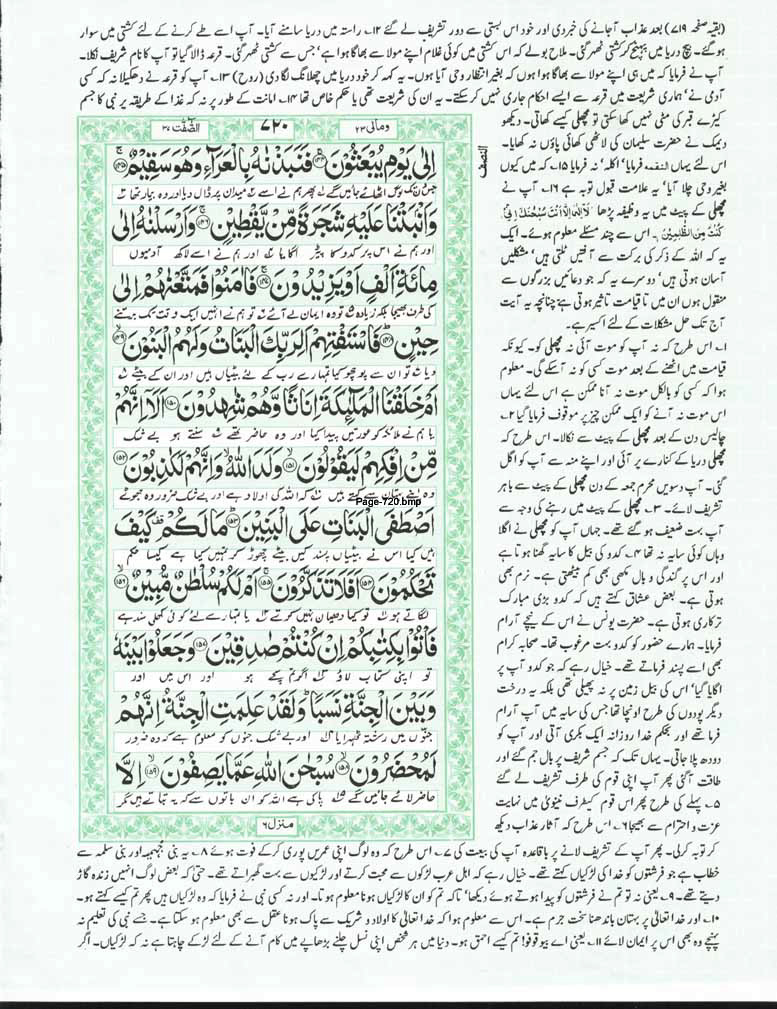 (بقیہ صفحہ ۷۱۹) بعد عذاب آجانے کی خبر دی اور خود اس بستی سے دور تشریف لے گئے ۱۲۔ راستہ میں دریا سامنے آیا۔ آپ اسے طے کرنے کے لئے کشتی میں سوار
ہو گئے۔ بیچ دریا میں پہنچ کر کشتی ٹھہر گئی۔ ملاح بولے کہ اس کشتی میں کوئی غلام اپنے مولا سے بھاگا ہوا ہے' جس سے کشتی ٹھہر گئی۔ قرعہ ڈالا گیا تو آپ کا نام شریف نکلا۔
آپ نے فرمایا کہ میں ہی اپنے مولا سے بھاگا ہوا ہوں کہ بغیر انتظار وحی آیا ہوں۔ یہ کہہ کر خود دریا میں چھلانگ لگا دی (روح) ۱۳۔ آپ کو قرعہ نے دھکیلا نہ کہ کسی
آدمی نے' ہماری شریعت میں قرعہ سے ایسے احکام جاری نہیں کر سکتے۔ یہ ان کی شریعت تھی یا حکم خاص تھا ۱۴۔ امانت کے طور پر نہ کہ غذا کے طریقہ پر نبی کا جسم
کیڑے قبر کی مٹی نہیں کھا سکتی تو مچھلی کیسے کھاتی۔ دیکھو
دیمک نے حضرت سلیمان کی لاٹھی کھائی پاؤں نہ کھایا۔
اس لئے یہاں النقمہ فرمایا' اکلہ' نہ فرمایا ۱۵۔ کہ میں کیوں
بغیر وحی چلا آیا' یہ علامت قبول توبہ ہے ۱۶۔ آپ نے
مچھلی کے پیٹ میں یہ وظیفہ پڑھا لَا اِلٰہَ اِلَّا اَنْتَ سُبْحٰنَكَ اِنِّیْ
کُنْتُ مِنَ الظّٰلِمِیْنَ۔ اس سے چند مسئلے معلوم ہوئے۔ ایک
یہ کہ اللہ کے ذکر کی برکت سے آفتیں ٹلتی ہیں' مشکلیں
آسان ہوتی ہیں' دوسرے یہ کہ جو دعائیں بزرگوں سے
منقول ہوں ان میں تا قیامت تاثیر ہوتی ہے چنانچہ یہ آیت
آج تک حل مشکلات کے لئے اکسیر ہے۔
۱۔ اس طرح کہ نہ آپ کو موت آتی نہ مچھلی کو۔ کیونکہ
قیامت میں اٹھنے کے بعد موت کسی کو نہ آسکے گی۔ معلوم
ہوا کہ کسی کو بالکل موت نہ آنا ممکن ہے اس لئے یہاں
اس موت نہ آنے کو ایک ممکن چیز پر موقوف فرمایا گیا ۲۔
چالیس دن کے بعد مچھلی کے پیٹ سے نکالا۔ اس طرح کہ
مچھلی دریا کے کنارے پر آئی اور اپنے منہ سے آپ کو اگل
گئی۔ آپ دسویں محرم جمعہ کے دن مچھلی کے پیٹ سے باہر
تشریف لائے۔ ۳۔ مچھلی کے پیٹ میں رہنے کی وجہ سے
آپ بہت ضعیف ہو گئے تھے۔ جہاں آپ کو مچھلی نے اگلا
وہاں کوئی سایہ نہ تھا ۴۔ کدو کی بیل کا سایہ گھنا ہوتا ہے
اور اس پر گندگی و بال مکھی بھی کم بیٹھتی ہے۔ نرم بھی
ہوتی ہے۔ بعض عشاق کہتے ہیں کہ کدو بڑی مبارک
ترکاری ہوتی ہے۔ حضرت یونس نے اس کے نیچے آرام
فرمایا۔ ہمارے حضور کو کدو بہت مرغوب تھا۔ صحابہ کرام
بھی اسے پسند فرماتے تھے۔ خیال رہے کہ جو کدو آپ پر
اگایا گیا' اس کی بیل زمین پر نہ پھیلی تھی بلکہ یہ درخت
دیگر پودوں کی طرح اونچا تھا جس کی سایہ میں آپ آرام
فرماتے تھے اور بحکم خدا روزانہ ایک بکری آتی اور آپ کو
دودھ پلا جاتی۔ یہاں تک کہ جسم شریف پر بال جم گئے اور
طاقت آگئی پھر آپ اپنی قوم کی طرف تشریف لے گئے
۵۔ پہلے کی طرح پھر اس قوم کیطرف نینویٰ میں نہایت
عزت و احترام سے بھیجا ۶۔ اس طرح کہ آثار عذاب دیکھ
النصف
الصّٰٓفّٰت ۳۷
۷۲۰
ومالی ۲۳
اِلٰى يَوْمِ يُبْعَثُوْنَ ۱۴۴ فَنَبَذْنٰهُ بِالْعَرَآءِ وَهُوَ سَقِيْمٌ ۱۴۵
جس دن تک لوگ اٹھائے جائیں گے پھر ہم نے اسے میدان پر ڈال دیا اور وہ بیمار تھا
وَاَنْۢبَتْنَا عَلَيْهِ شَجَرَةً مِّنْ يَّقْطِيْنٍ ۱۴۶ وَاَرْسَلْنٰهُ اِلٰى
اور ہم نے اس پر کدو کا پیڑ اگایا اور ہم نے اسے لاکھ آدمیوں
مِائَةِ اَلْفٍ اَوْ يَزِيْدُوْنَ ۱۴۷ فَاٰمَنُوْا فَمَتَّعْنٰهُمْ اِلٰى
کی طرف بھیجا بلکہ زیادہ تو وہ ایمان لے آئے تو ہم نے انہیں ایک وقت تک برتنے
حِيْنٍ ۱۴۸ فَاسْتَفْتِهِمْ اَلِرَبِّكَ الْبَنَاتُ وَلَهُمُ الْبَنُوْنَ ۱۴۹
دیا تو ان سے پوچھو کیا تمہارے رب کے لئے بیٹیاں ہیں اور ان کے بیٹے
اَمْ خَلَقْنَا الْمَلٰٓئِكَةَ اِنَاثًا وَّهُمْ شٰهِدُوْنَ ۱۵۰ اَلَآ اِنَّهُمْ
یا ہم نے ملائکہ کو عورتیں پیدا کیا اور وہ حاضر تھے سنتے ہو بے شک
مِّنْ اِفْكِهِمْ لَيَقُوْلُوْنَ ۱۵۱ وَلَدَ اللّٰهُ وَاِنَّهُمْ لَكٰذِبُوْنَ ۱۵۲
وہ اپنے بہتان سے کہتے ہیں کہ اللہ کی اولاد ہے اور بے شک ضرور وہ جھوٹے
Page-720.bmp
اَصْطَفَى الْبَنَاتِ عَلَى الْبَنِيْنَ ۱۵۳ مَا لَكُمْ كَيْفَ
ہیں کیا اس نے بیٹیاں پسند کیں بیٹے چھوڑ کر تمہیں کیا ہے کیسا حکم
تَحْكُمُوْنَ ۱۵۴ اَفَلَا تَذَكَّرُوْنَ ۱۵۵ اَمْ لَكُمْ سُلْطٰنٌ مُّبِيْنٌ ۱۵۶
لگاتے ہو تو کیا دھیان نہیں کرتے یا تمہارے لئے کوئی کھلی سند ہے
فَاْتُوْا بِكِتٰبِكُمْ اِنْ كُنْتُمْ صٰدِقِيْنَ ۱۵۷ وَجَعَلُوْا بَيْنَهٗ
تو اپنی کتاب لاؤ اگر تم سچے ہو اور اس میں اور
وَبَيْنَ الْجِنَّةِ نَسَبًا وَلَقَدْ عَلِمَتِ الْجِنَّةُ اِنَّهُمْ
جنوں میں رشتہ ٹھہرایا اور بے شک جنوں کو معلوم ہے کہ وہ ضرور
لَمُحْضَرُوْنَ ۱۵۸ سُبْحٰنَ اللّٰهِ عَمَّا يَصِفُوْنَ ۱۵۹ اِلَّا
حاضر لائے جائیں گے پاکی ہے اللہ کو ان باتوں سے کہ یہ بتاتے ہیں مگر
منزل ۶
کر توبہ کر لی۔ پھر آپ کے تشریف لانے پر باقاعدہ آپ کی بیعت کی ۷۔ اس طرح کہ وہ لوگ اپنی عمریں پوری کر کے فوت ہوئے ۸۔ یہ بنی جہیمہ اور بنی سلمہ سے
خطاب ہے جو فرشتوں کو خدا کی لڑکیاں کہتے تھے۔ خیال رہے کہ اہل عرب لڑکوں سے محبت کرتے اور لڑکیوں سے بہت گھبراتے تھے۔ حتیٰ کہ بعض لوگ انہیں زندہ گاڑ
دیتے تھے۔ ۹۔ یعنی نہ تو تم نے فرشتوں کو پیدا ہوتے ہوئے دیکھا' تاکہ تم کو ان کا لڑکیاں ہونا معلوم ہوتا۔ اور نہ کسی نبی نے فرمایا کہ وہ لڑکیاں ہیں پھر تم کیسے کہتے ہو۔
۱۰۔ اور خدا تعالیٰ پر بہتان باندھنا سخت جرم ہے۔ اس سے معلوم ہوا کہ خدا تعالیٰ کا اولاد و شریک سے پاک ہونا عقل سے بھی معلوم ہو سکتا ہے۔ جسے نبی کی تعلیم نہ
پہنچے وہ بھی اس پر ایمان لائے ۱۱۔ یعنی اے بیوقوفو! تم کیسے احمق ہو۔ دنیا میں ہر شخص اپنی نسل چلنے بڑھاپے میں کام آنے کے لئے لڑکے چاہتا ہے نہ کہ لڑکیاں۔ اگر